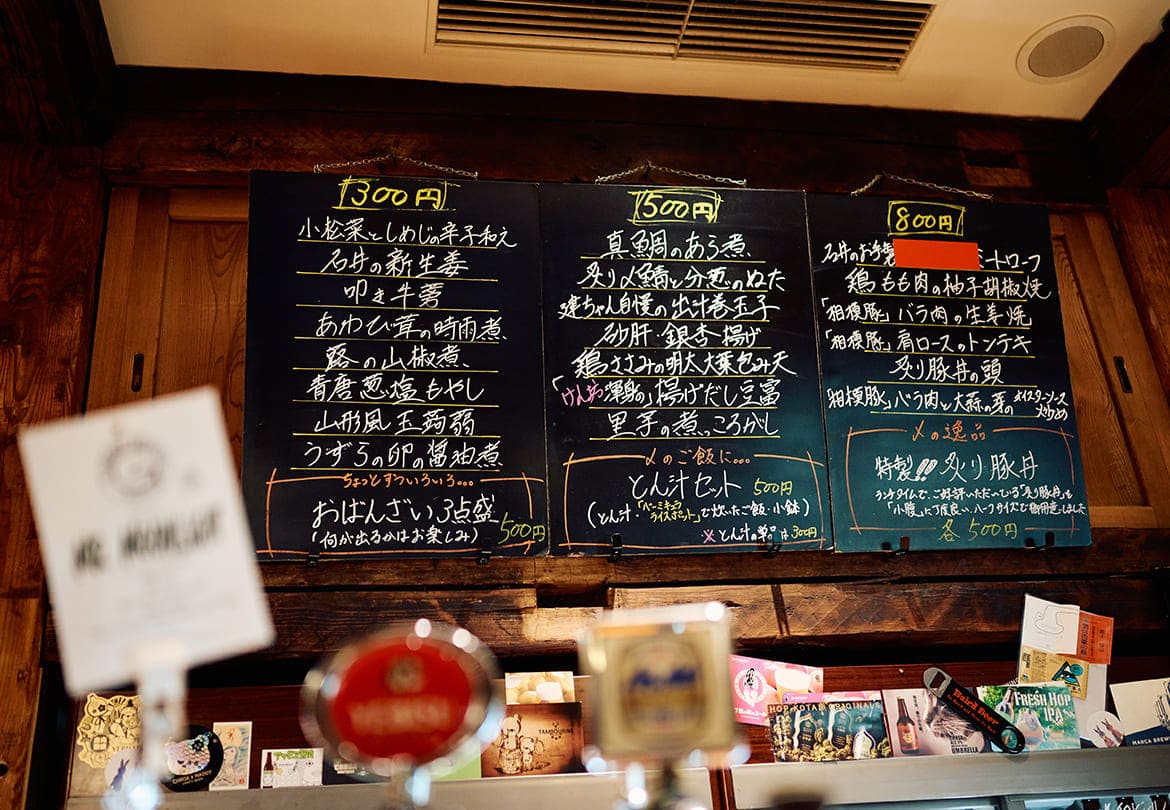 300円
小松菜としめじの辛子和え
石井の新生姜
叩き牛蒡
あわび茸の時雨煮
蕗の山椒煮
青唐葱塩もやし
山形風玉蒟蒻
うずらの卵の醤油煮
ちょっとずついろいろ…
おばんざい3点盛
500円
(何が出るかはお楽しみ)
500円
真鯛のあら煮
炙り〆鯖と分葱のぬた
建ちゃん自慢の出汁巻玉子
砂肝・銀杏揚げ
鶏ささみの明太大葉包み天
揚げだし豆富
里芋の煮っころがし
〆のご飯に…
とん汁セット 500円
(とん汁・「バーミキュラライスポット」で炊いたご飯・小鉢)
※とん汁の単品は300円
800円
石井のお手製
ミートローフ
鶏もも肉の柚子胡椒焼
「相模豚」バラ肉の生姜焼
「相模豚」肩ロースのトンテキ
炙り豚丼の頭
「相模豚」バラ肉と大蒜の芽のオイスターソース炒め
〆の逸品
特製!!炙り豚丼
ランチタイムで、ご好評いただいている「炙り豚丼」を
「小腹」に丁度良い、ハーフサイズで御用意しました
各500円
TAMBOURINE
HOP-KOTAN ORIGINALS
UMBRELLA
Baird Beer
FRESH HOP
IPA